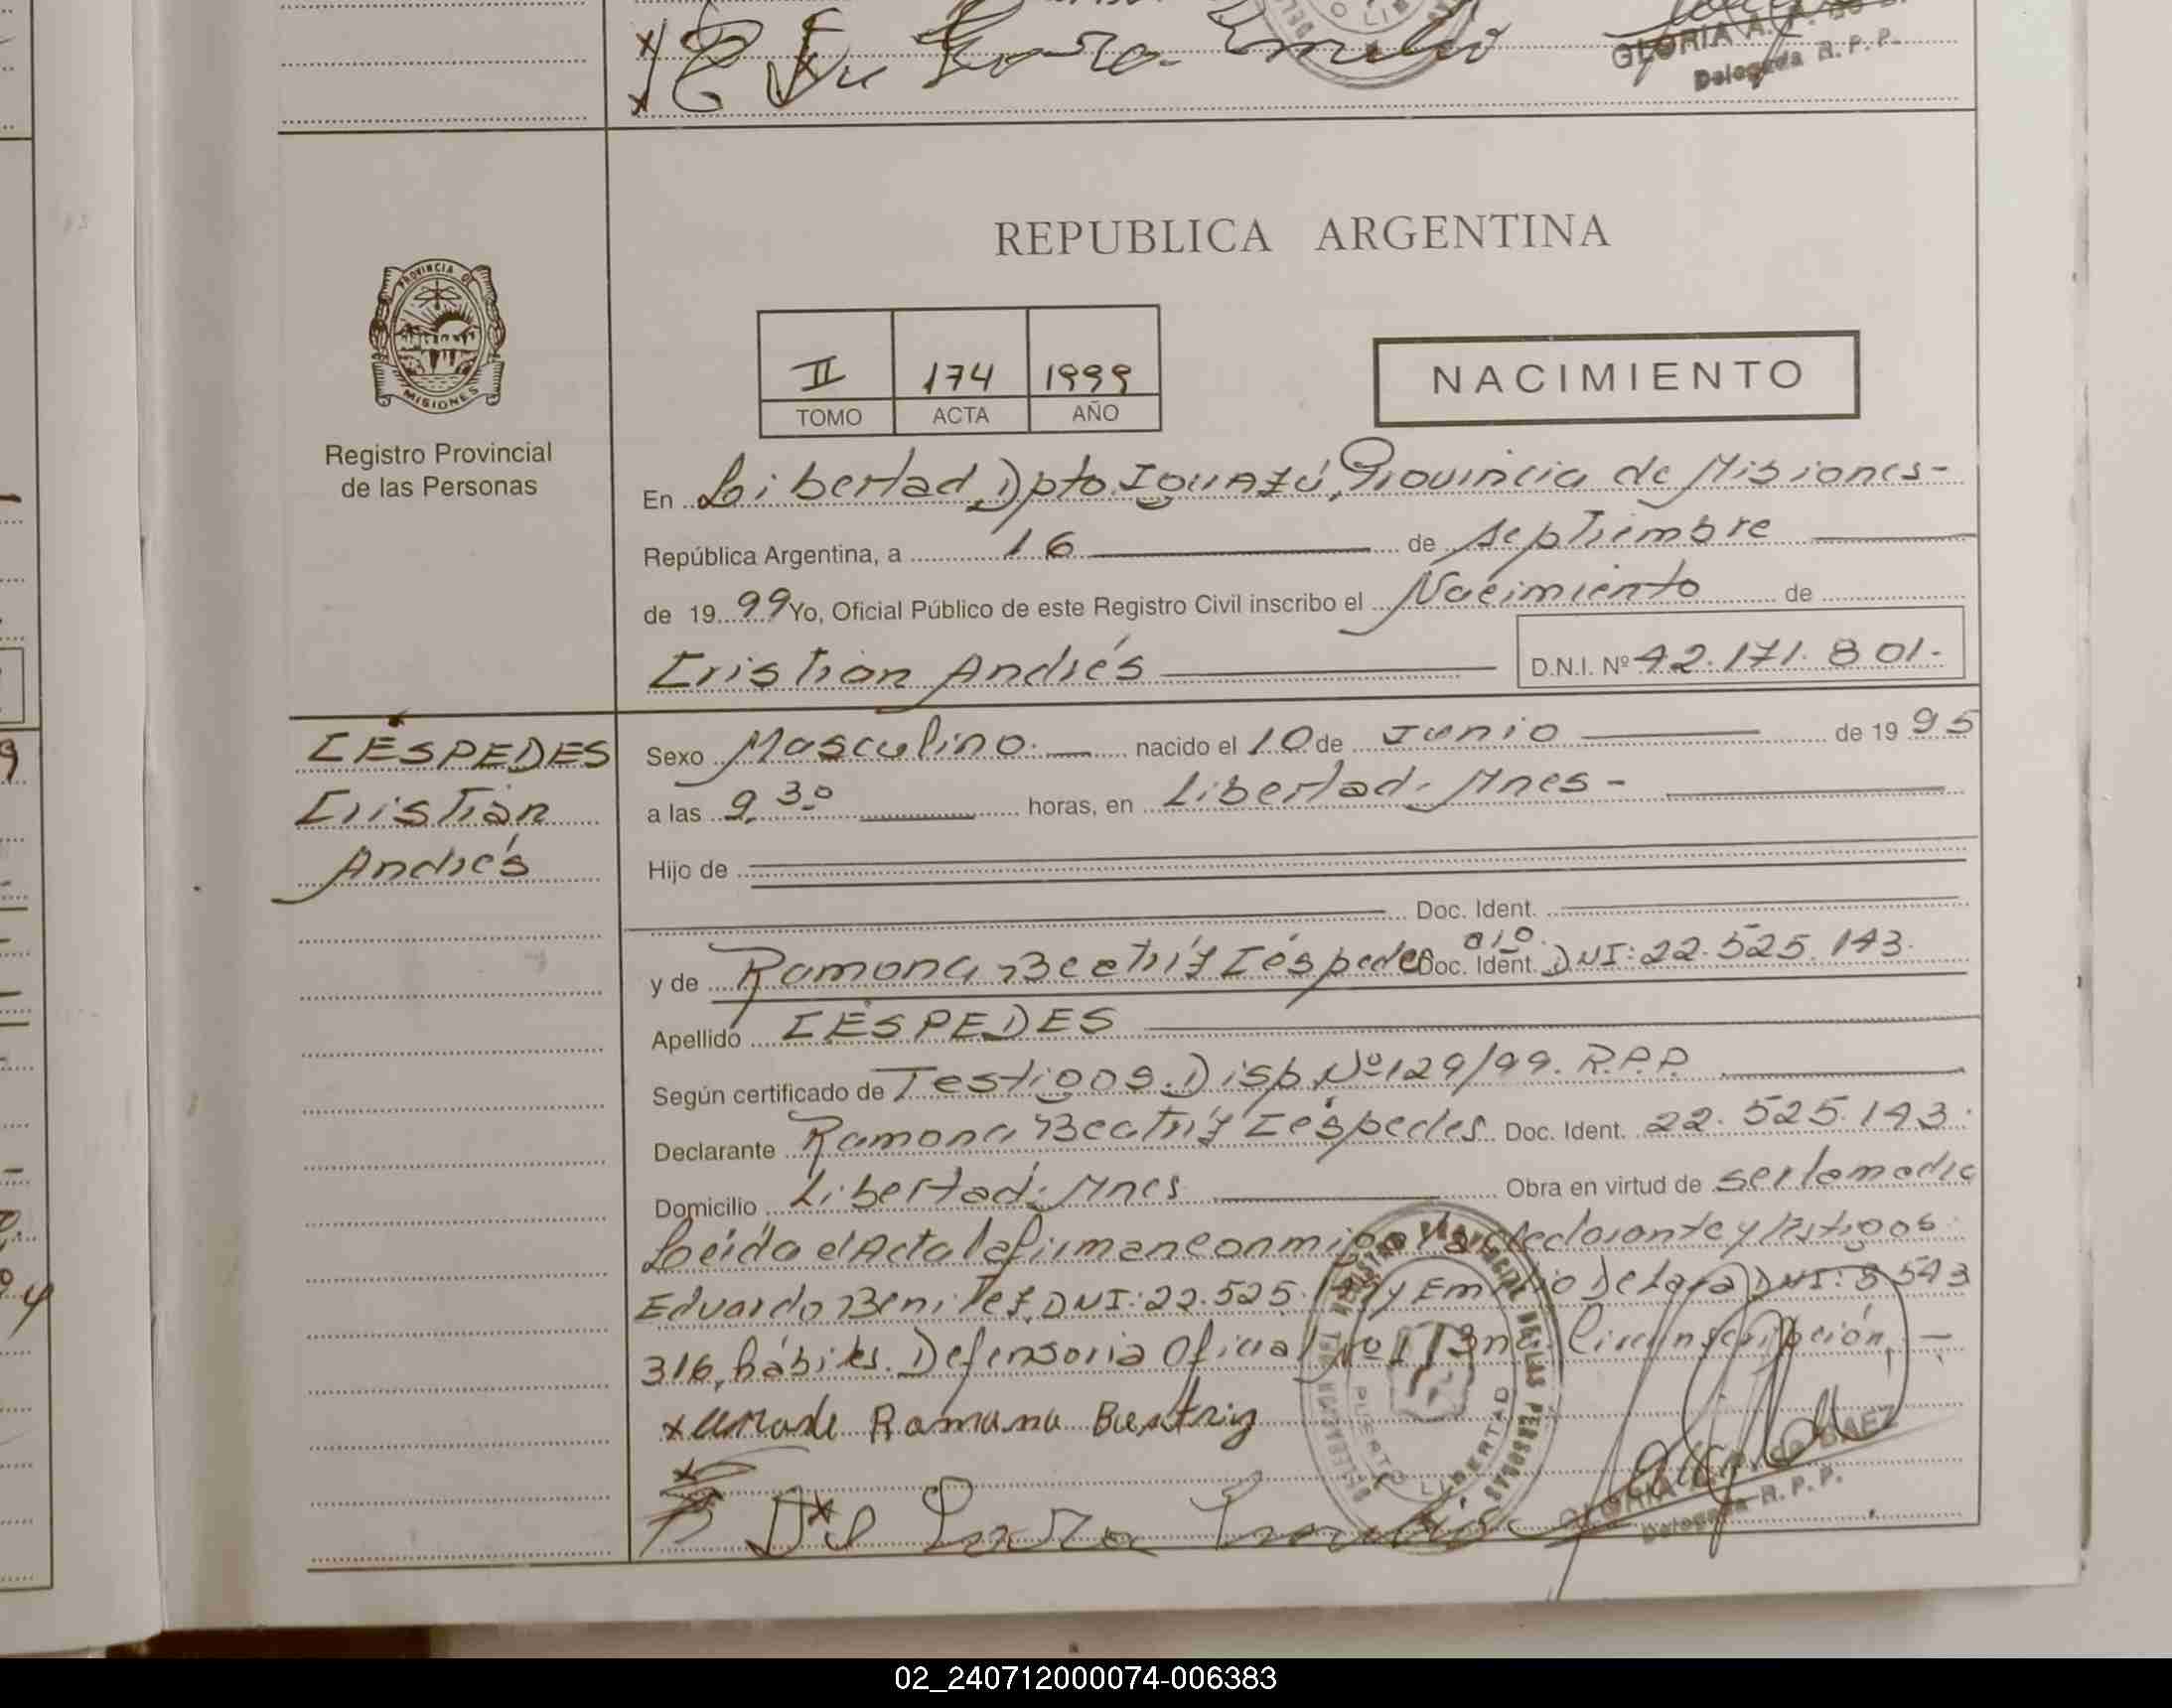 GLORIA A.
Delegada R.P.P.
REPUBLICA ARGENTINA
PROVINCIA DE
MISIONES
II 174 1999
TOMO ACTA AÑO
NACIMIENTO
Registro Provincial
de las Personas
En Libertad, Dpto. Iguazú, Provincia de Misiones-
República Argentina, a 16 de septiembre
de 19 99 Yo, Oficial Público de este Registro Civil inscribo el Nacimiento de
Cristian Andrés D.N.I. Nº 42.171.801.-
CÉSPEDES
Cristian
Andrés
Sexo Masculino. nacido el 10 de Junio de 19 95
a las 9,30 horas, en Libertad. Mnes -
Hijo de
Doc. Ident.
y de Ramona Beatríz Céspedes Doc. Ident. DNI: 22.525.143.
Apellido CÉSPEDES
Según certificado de Testigos. Disp. Nº 129/99. R.P.P.
Declarante Ramona Beatríz Céspedes Doc. Ident. 22.525.143.
Domicilio Libertad. Mnes Obra en virtud de ser la madre
Leída el Acta la firman conmigo la declarante y testigos
Eduardo Benitez, DNI: 22.525. y Emilio De Lara, DNI: 8 543
316, hábiles. Defensoria Oficial Nº 1 3ra. Circunscripción, -
x Ramona Beatriz
REGISTRO PROVINCIAL DE LAS PERSONAS
DELEGACION
PUERTO LIBERTAD
GLORIA de BAEZ
Delegada R.P.P.
02_240712000074-006383